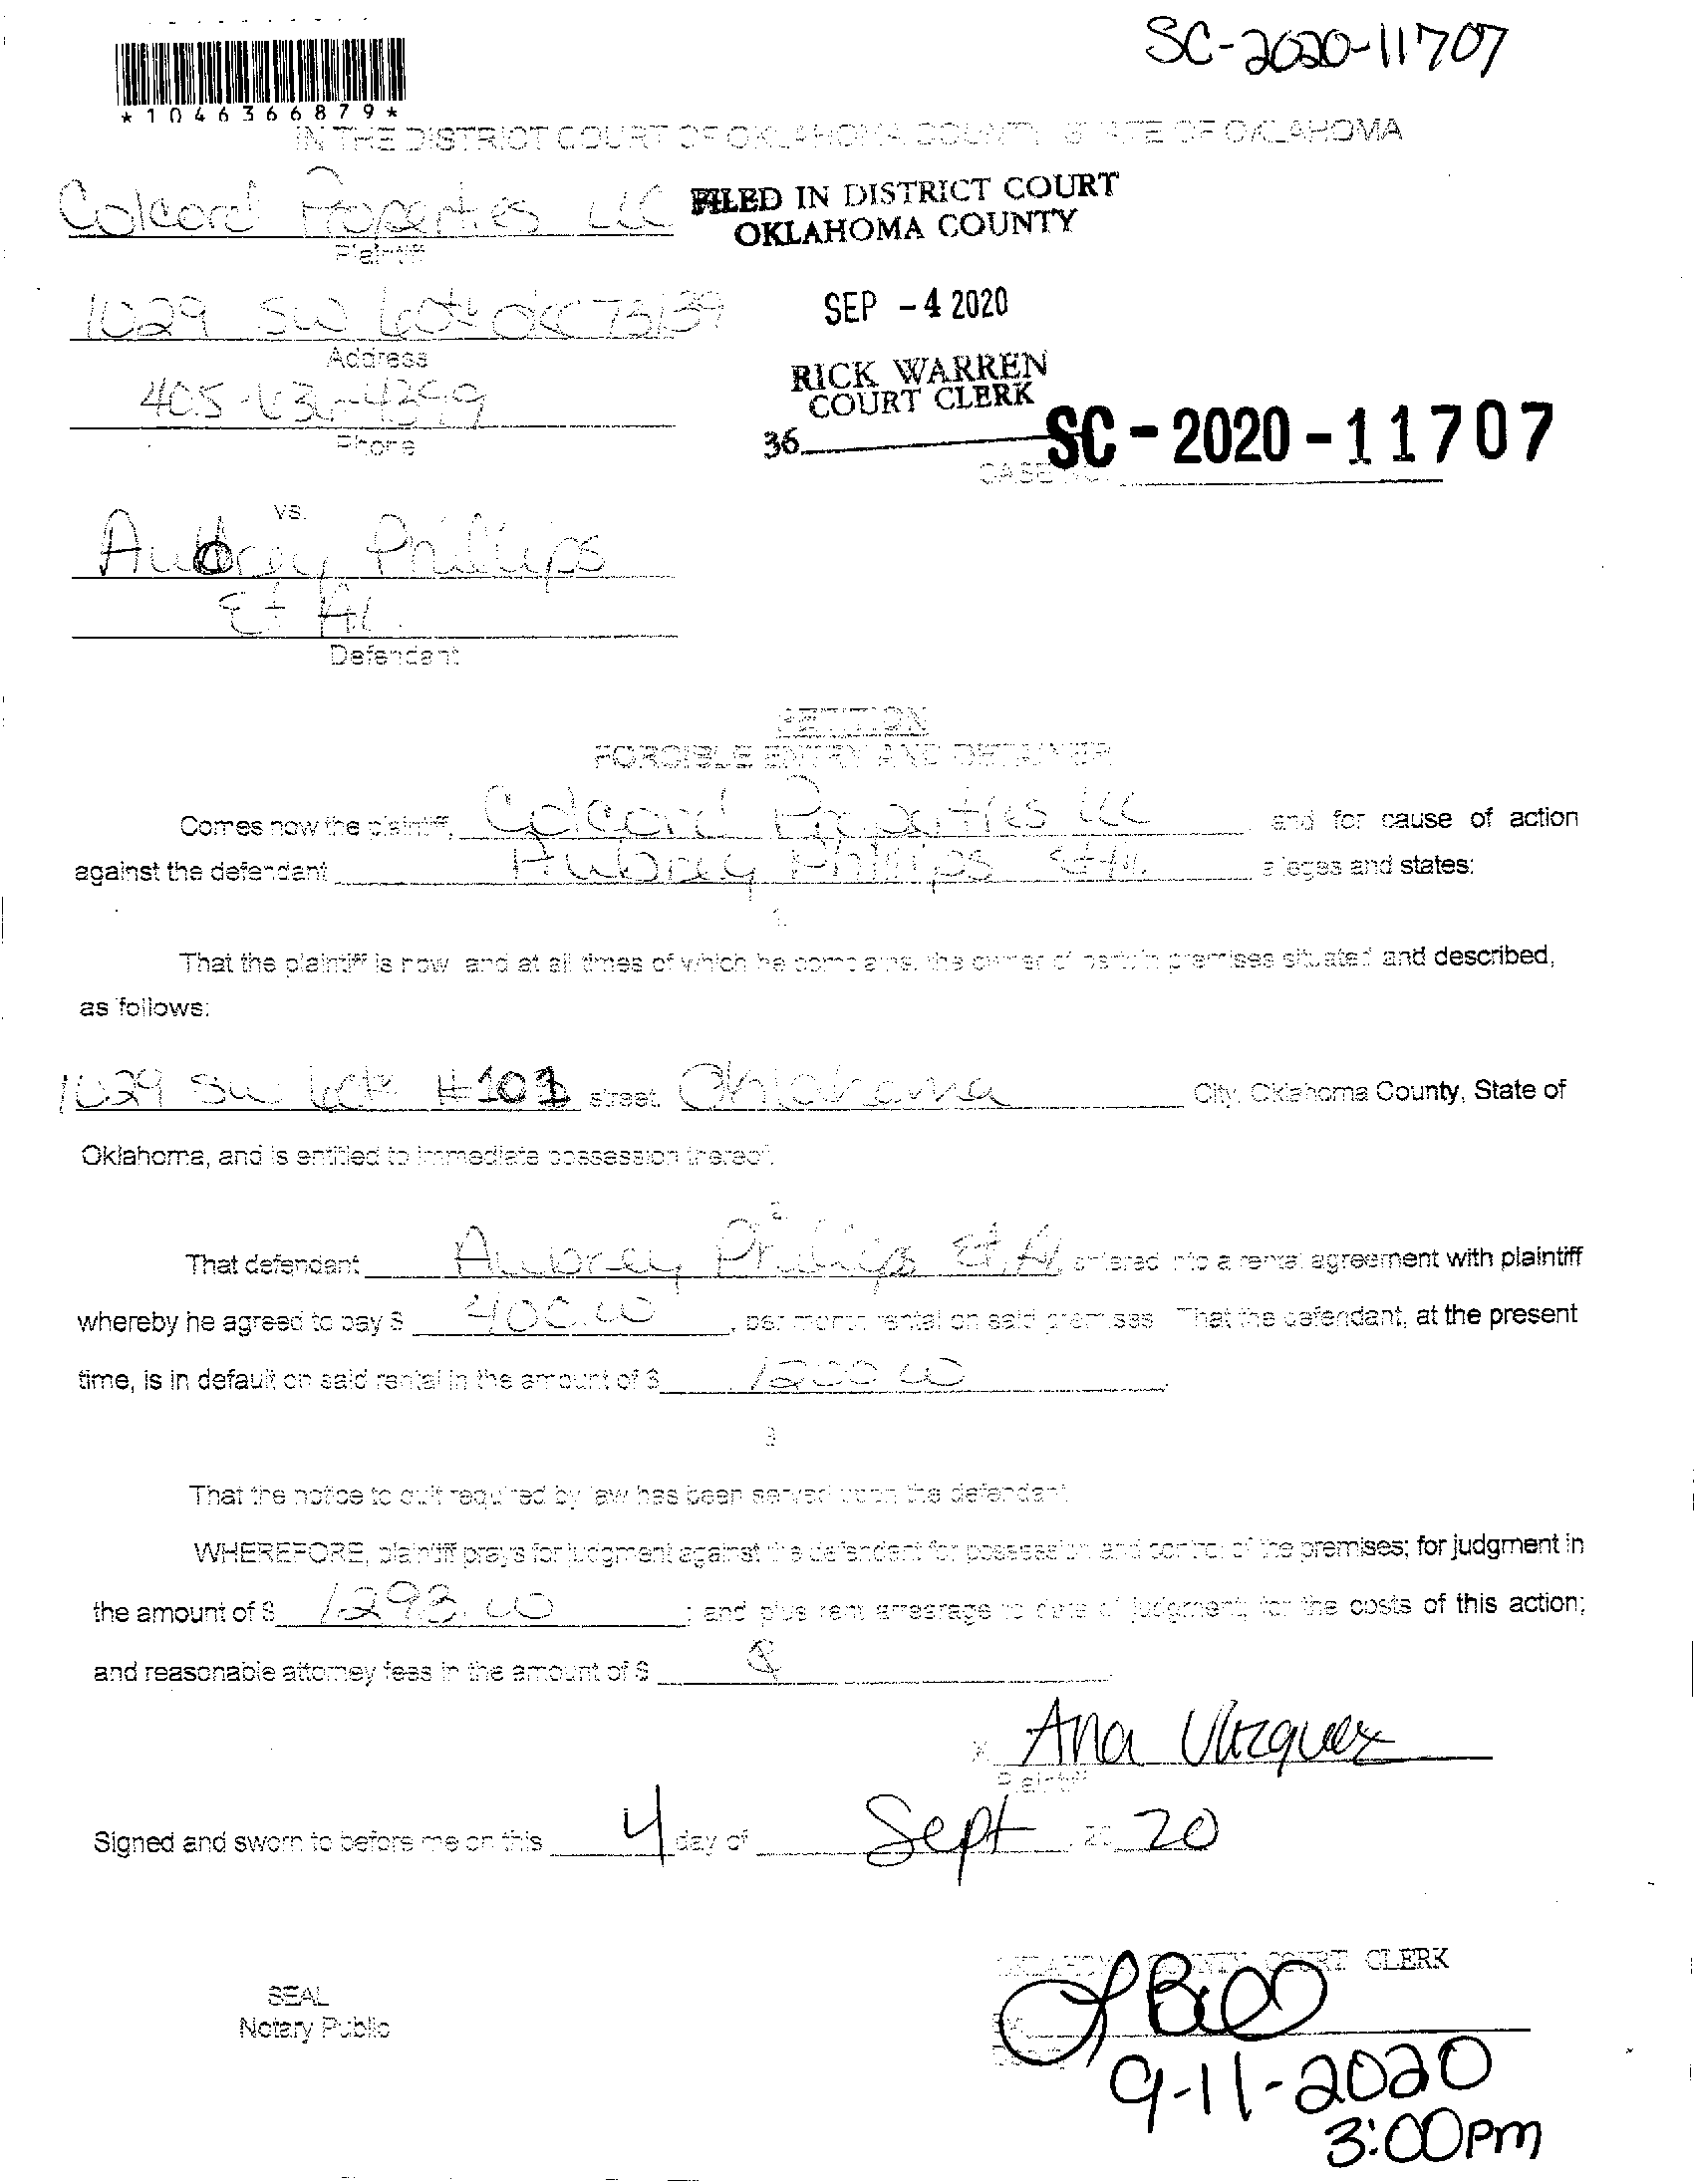 SC-2020-11707
*1046366879*
IN THE DISTRICT COURT OF OKLAHOMA COUNTY STATE OF OKLAHOMA
Colcord Properties LLC
FILED IN DISTRICT COURT
OKLAHOMA COUNTY
Plaintiff
1029 SW OKC 73139
SEP - 4 2020
Address
RICK WARREN
COURT CLERK
Phone
36
SC-2020-11707
CASE NO.
vs.
Aubrey Phillips
Et Al.
Defendant
PETITION
FORCIBLE ENTRY AND DETAINER
Comes now the plaintiff, Colcord Properties LLC and for cause of action
against the defendant Aubrey Phillips Et Al. alleges and states:
1.
That the plaintiff is now and at all times of which he complains, the owner of certain premises situated and described,
as follows:
1029 SW #101 street, Oklahoma City, Oklahoma County, State of
Oklahoma, and is entitled to immediate possession thereof.
2.
That defendant Aubrey Phillips Et Al entered into a rental agreement with plaintiff
whereby he agreed to pay $ 400.00, per month rental on said premises. That the defendant, at the present
time, is in default on said rental in the amount of $ 1200.00.
3
That the notice to quit required by law has been served upon the defendant.
WHEREFORE, plaintiff prays for judgment against the defendant for possession and control of the premises; for judgment in
the amount of $ 1293.00; and plus rent arrearage to date of judgment; for the costs of this action;
and reasonable attorney fees in the amount of $
x Ana Vazquez
Plaintiff
Signed and sworn to before me on this 4 day of Sept, 20 20
OKLAHOMA COUNTY COURT CLERK
SEAL
Notary Public
9-11-2020
3:00pm